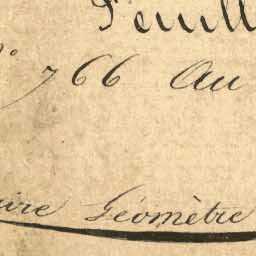 Feuill
N° 766 Au
aire Géomètre